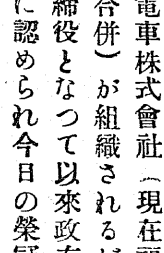 電車株式會社（現在
合併）が組織される
締役となつて以來政
に認められ今日の榮